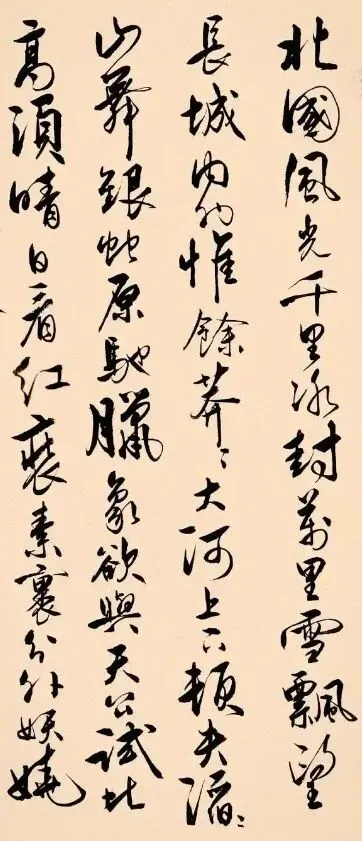 北國風光千里冰封萬里雪飄望
長城內外惟餘莽〻大河上下頓失滔〻
山舞銀蛇原馳臘象欲與天公試比
高須晴日看紅裝素裹分外妖嬈